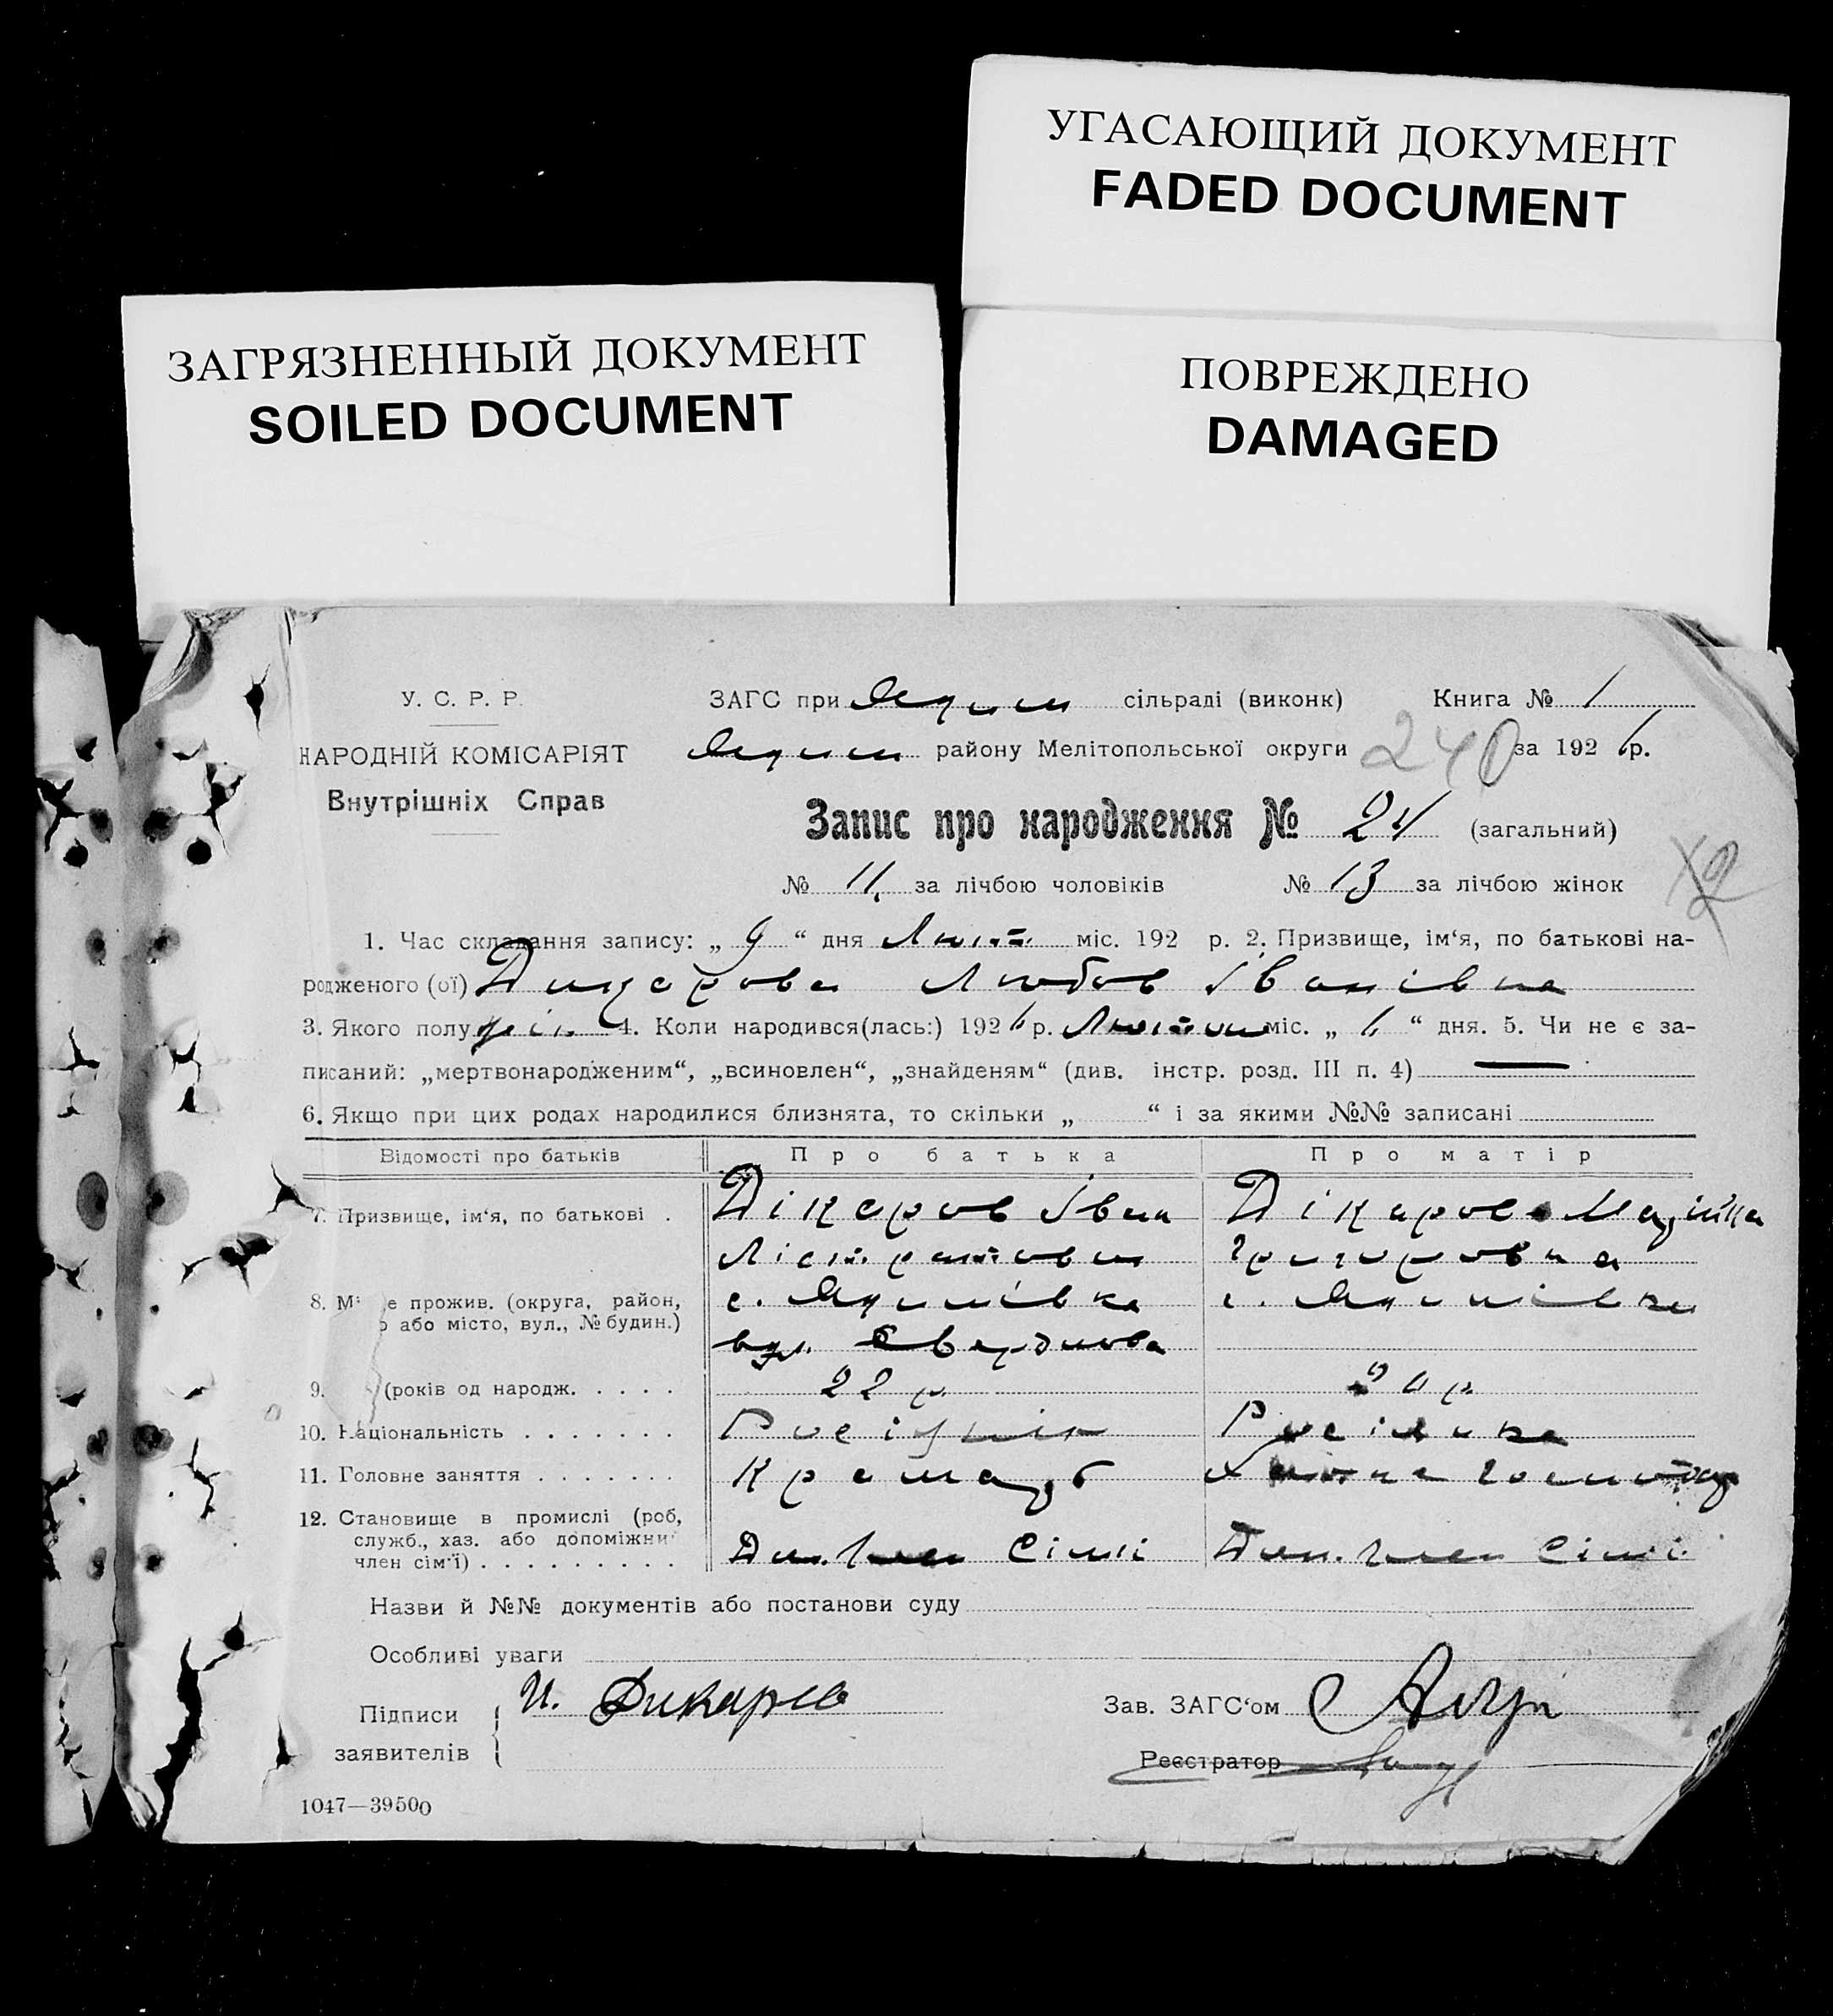 УГАСАЮЩИЙ ДОКУМЕНТ
FADED DOCUMENT
ЗАГРЯЗНЕННЫЙ ДОКУМЕНТ
SOILED DOCUMENT
ПОВРЕЖДЕНО
DAMAGED
У. С. Р. Р. ЗАГС при сільраді (виконк) Книга № 1
НАРОДНІЙ КОМІСАРІЯТ району Мелітопольської округи 240 за 1926 р.
Внутрішніх Справ
Запис про народження № 24 (загальний)
№ 11. за лічбою чоловіків № 13 за лічбою жінок
1. Час складання запису: „ 9 “ дня міс. 192 р. 2. Призвище, ім‘я, по батькові на-
родженого (ої) Дикарова Любов Іванівна
3. Якого полу жін. 4. Коли народився(лась:) 1926 р. міс. „ 6 “ дня. 5. Чи не є за-
писаний: „мертвонародженим“, „всиновлен“, „знайденям“ (див. інстр. розд. III п. 4) —
6. Якщо при цих родах народилися близнята, то скільки „ “ і за якими №№ записані
Відомості про батьків Про батька Про матір
7. Призвище, ім‘я, по батькові . Дікаров Іван Дікарова
Григоровна
8. М е прожив. (округа, район, с. Якимівка с. Якимівка
о або місто, вул., № будин.) вул. Свердлова
9. (років од народж. . . . . 22 р. 20 р.
10. Національність . . . . . . . Росіянін Росіянка
11. Головне заняття . . . . . . . Крамарь Хатне
12. Становище в промислі (роб,
служб., хаз. або допоміжни
член сім‘ї) . . . . . . . . . . Доп. член Сімї Доп. член Сімї
Назви й №№ документів або постанови суду
Особливі уваги
Підписи И. Дикарев Зав. ЗАГС‘ом
заявителів Реєстратор
1047—39500